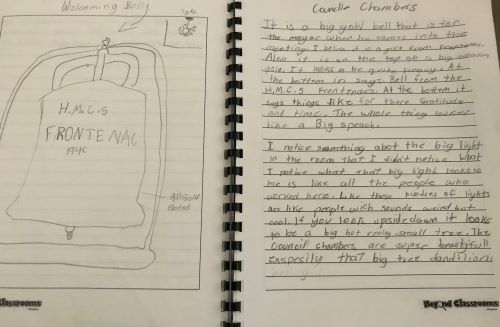 Welcoming Belly
H.M.C.S
FRONTENAC
Plated
Classrooms
Councler Chambers
It is a big gold bell that is for
the mayor when he comes into the
meeting. I belive it is a gift from Frontenac.
Also it is on the top of a big
pole. It looks to be quite heavy. At
the bottom in says. Bell from the
H.M.C.S Frontenac. At the bottom it
says things like for there Gratitude
and time. The whole thing
like a Big speach.
I notice something abot the big light
in the room that I didn't notice. What
I notice what that big light looks to
me is like all the people who
worked here. Like these hundres of lights
are like people wich sounds weird but
cool. If you look upside down it looks
to be a big but really small tree. The
Council chambers are super beautifull
Exspesilly that big tree dandilion.
Beyond Classrooms